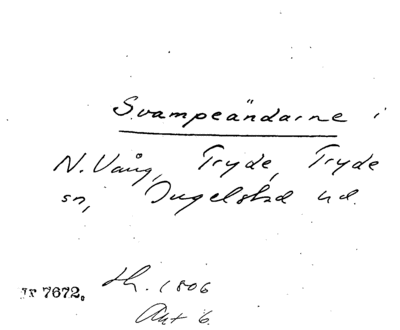 Svampeändarne i
N. Vång, Tryde, Tryde
sn, Ingelstad hd.
7672. th. 1806
Akt 6.